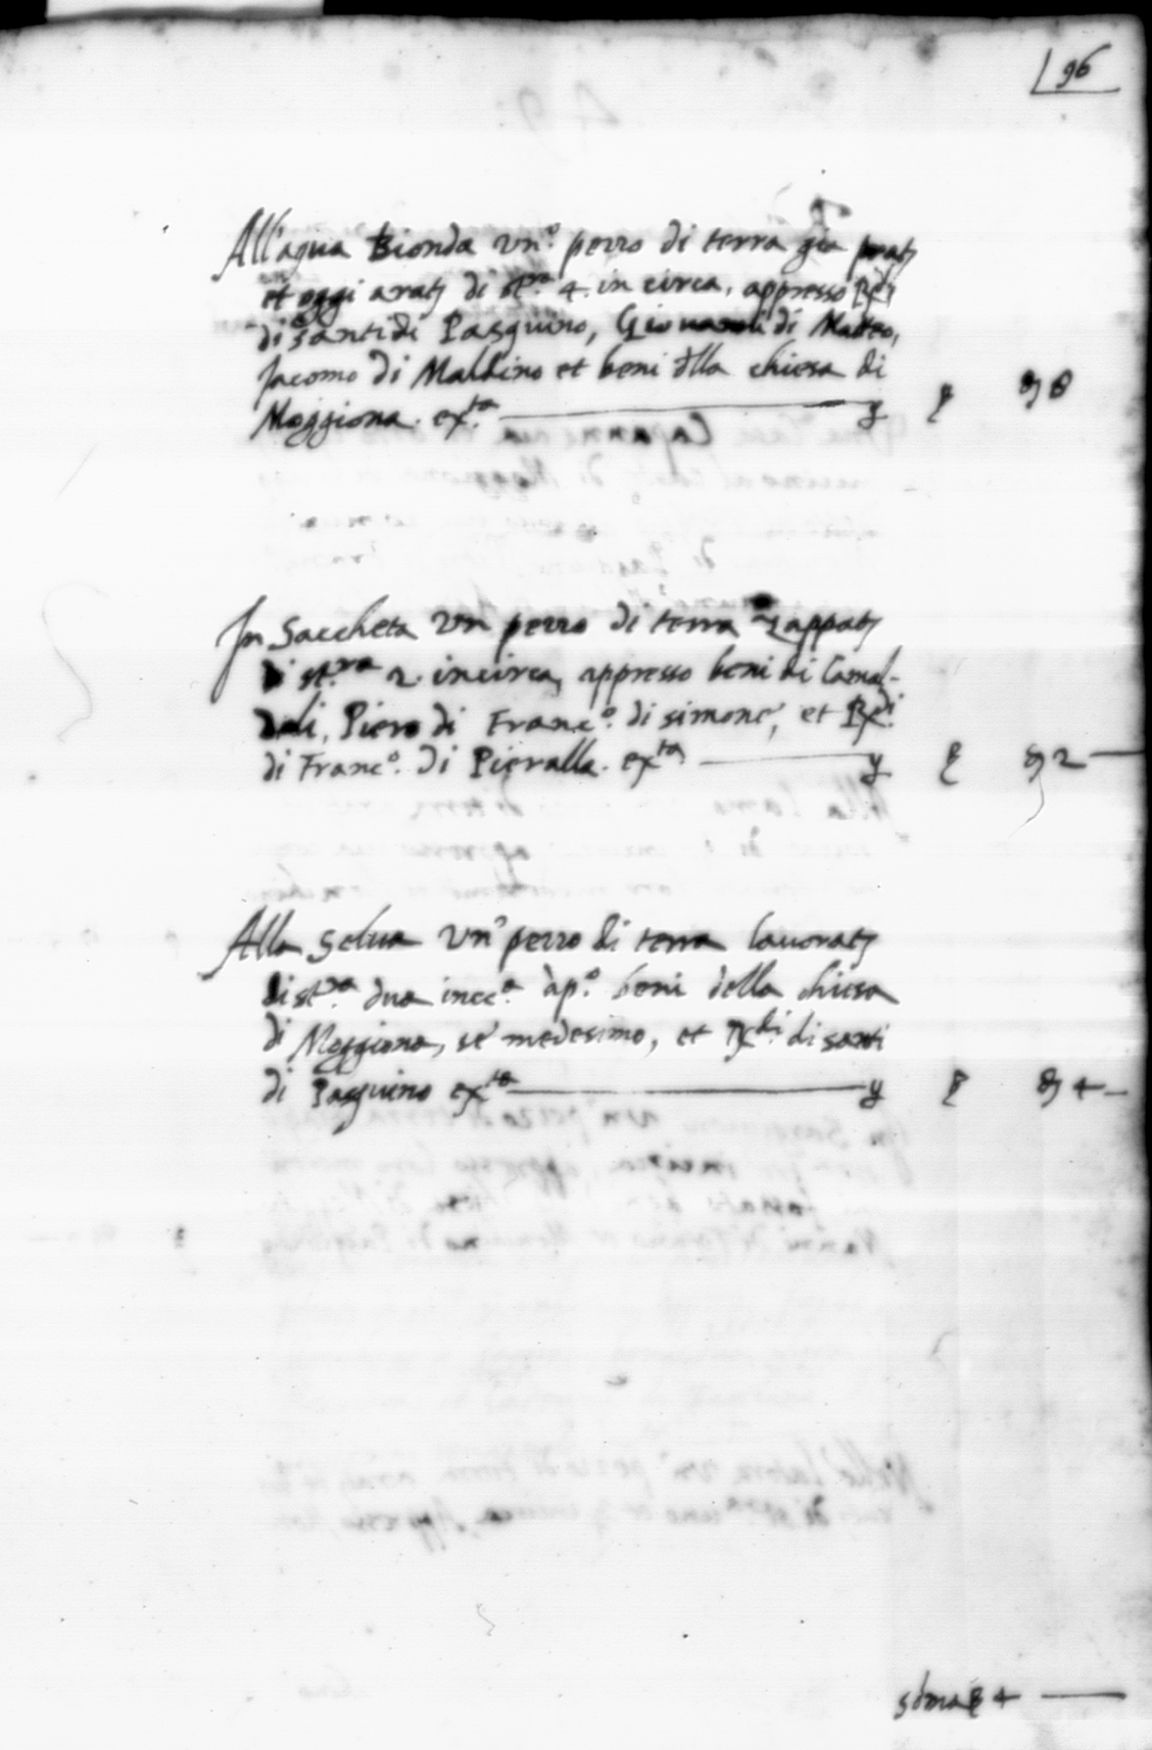 96
All'aqua Bionda vn.º pezzo di terra gia prat.
et oggi arat. di st.ra 4. in circa, appresso Rdi
di santi di Pasquino, Giovanni di Matteo,
Jacomo di Maldino et beni dlla chiesa di
Moggiona. exta 8
In Saccheta vn pezzo di terra zappat.
di st.ra 2. incirca, appresso beni di Camal-
doli, Piero di Franc.º di simone, et Rdi
di Franc.º di Pieralla. exta 2
Alla Selua vn pezzo di terra lauorat.
di st.ra dua incc.a ap.º beni della chiesa
di Moggiona, se medesimo, et Rdi di santi
di Pasquino exta 4
soma 4